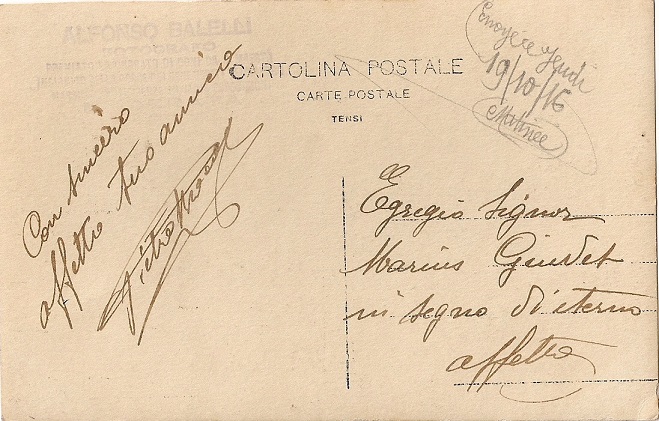 ALFONSO BALELLI
FOTOGRAFO
CARTOLINA POSTALE
CARTE POSTALE
TENSI
19/10/16
Matinée
Con sincero
affetto tuo amico
Pietro
Egregio Signor
Marius Gendet
in segno di eterno
affetto